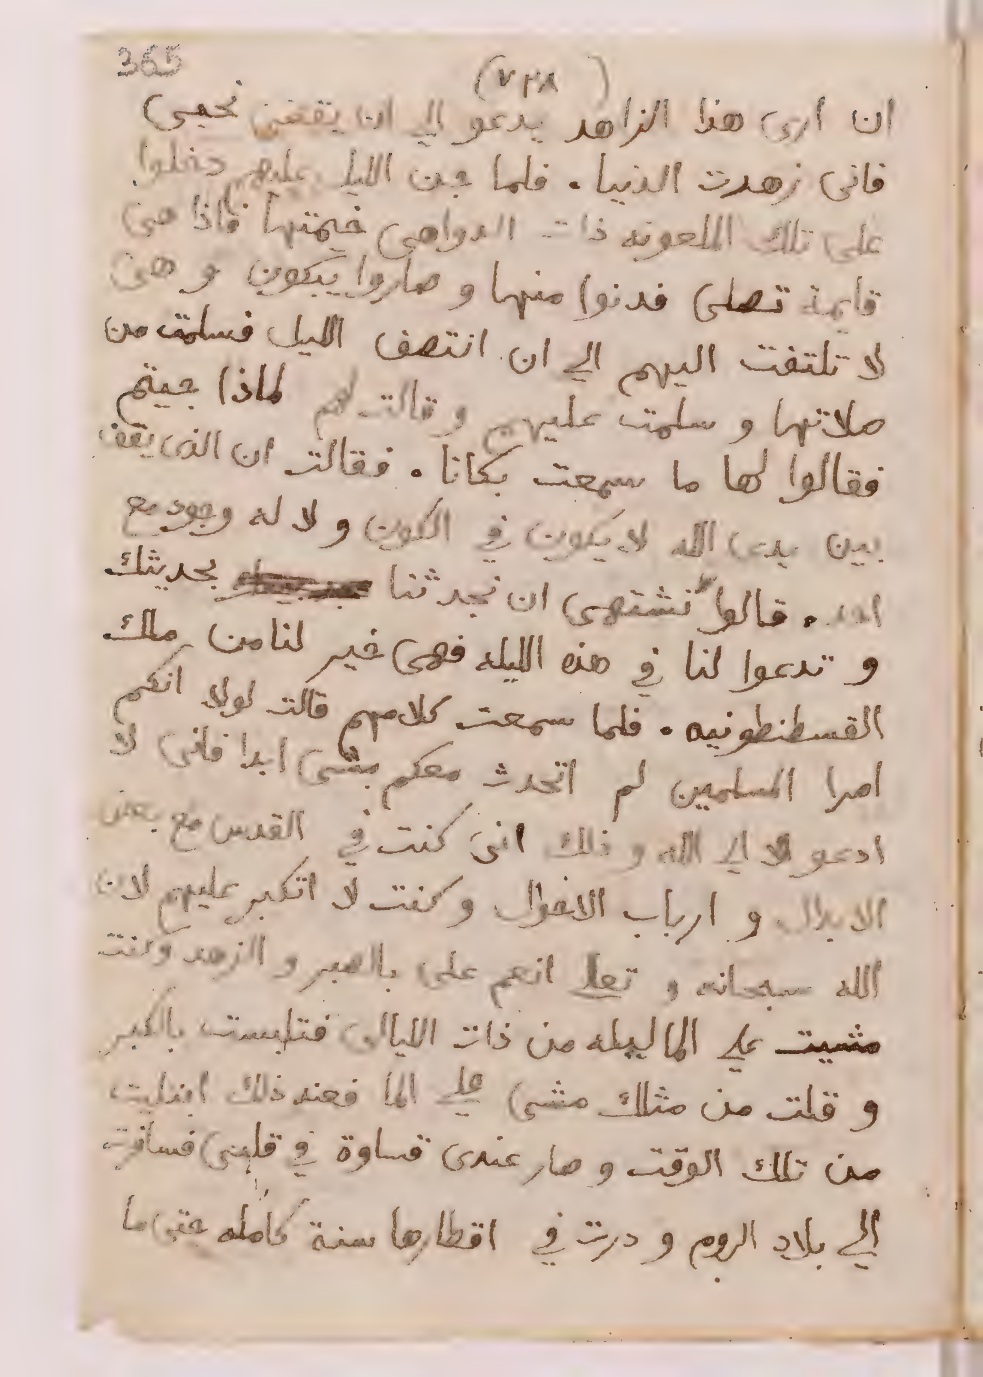 365
(٧٢٨)
ان ارى هذا الزاهد يدعو الي ان يقضى نحبى
فانى زهدت الدنيا . فلما جن الليل عليهم دخلوا
على تلك الملعونه ذات الدواهى خيمتها فاذا هى
قايمة تصلى فدنوا منها و صاروا يبكون و هى
لا تلتفت اليهم الي ان انتصف الليل فسلمت من
صلاتها و سلمت عليهم و قالت لهم لماذا جيتم
فقالوا لها ما سمعت بكانا . فقالت ان الذى يقف
بين يدى الله لا يكون في الكون و لا له وجود مع
احد . قالوا نشتهى ان تحدثنا بحديثك
و تدعوا لنا في هذه الليله فهى خير لنا من ملك
القسطنطونيه . فلما سمعت كلامهم قالت لولا انكم
امرا المسلمين لم اتحدث معكم بشى ابدا فانى لا
ادعو الا الي الله و ذلك انى كنت في القدس مع بعض
الابدال و ارباب الاحوال و كنت لا اتكبر عليهم لان
الله سبحانه و تعالى انعم على بالصبر و الزهد و كنت
مشيت علي الما ليله من ذات الليالى فتلبست بالكبر
و قلت من مثلك مشى علي الما فعند ذلك ابتليت
من تلك الوقت و صار عندى قساوة في قلبى فسافرت
الي بلاد الروم و درت في اقطارها سنة كامله حتى ما